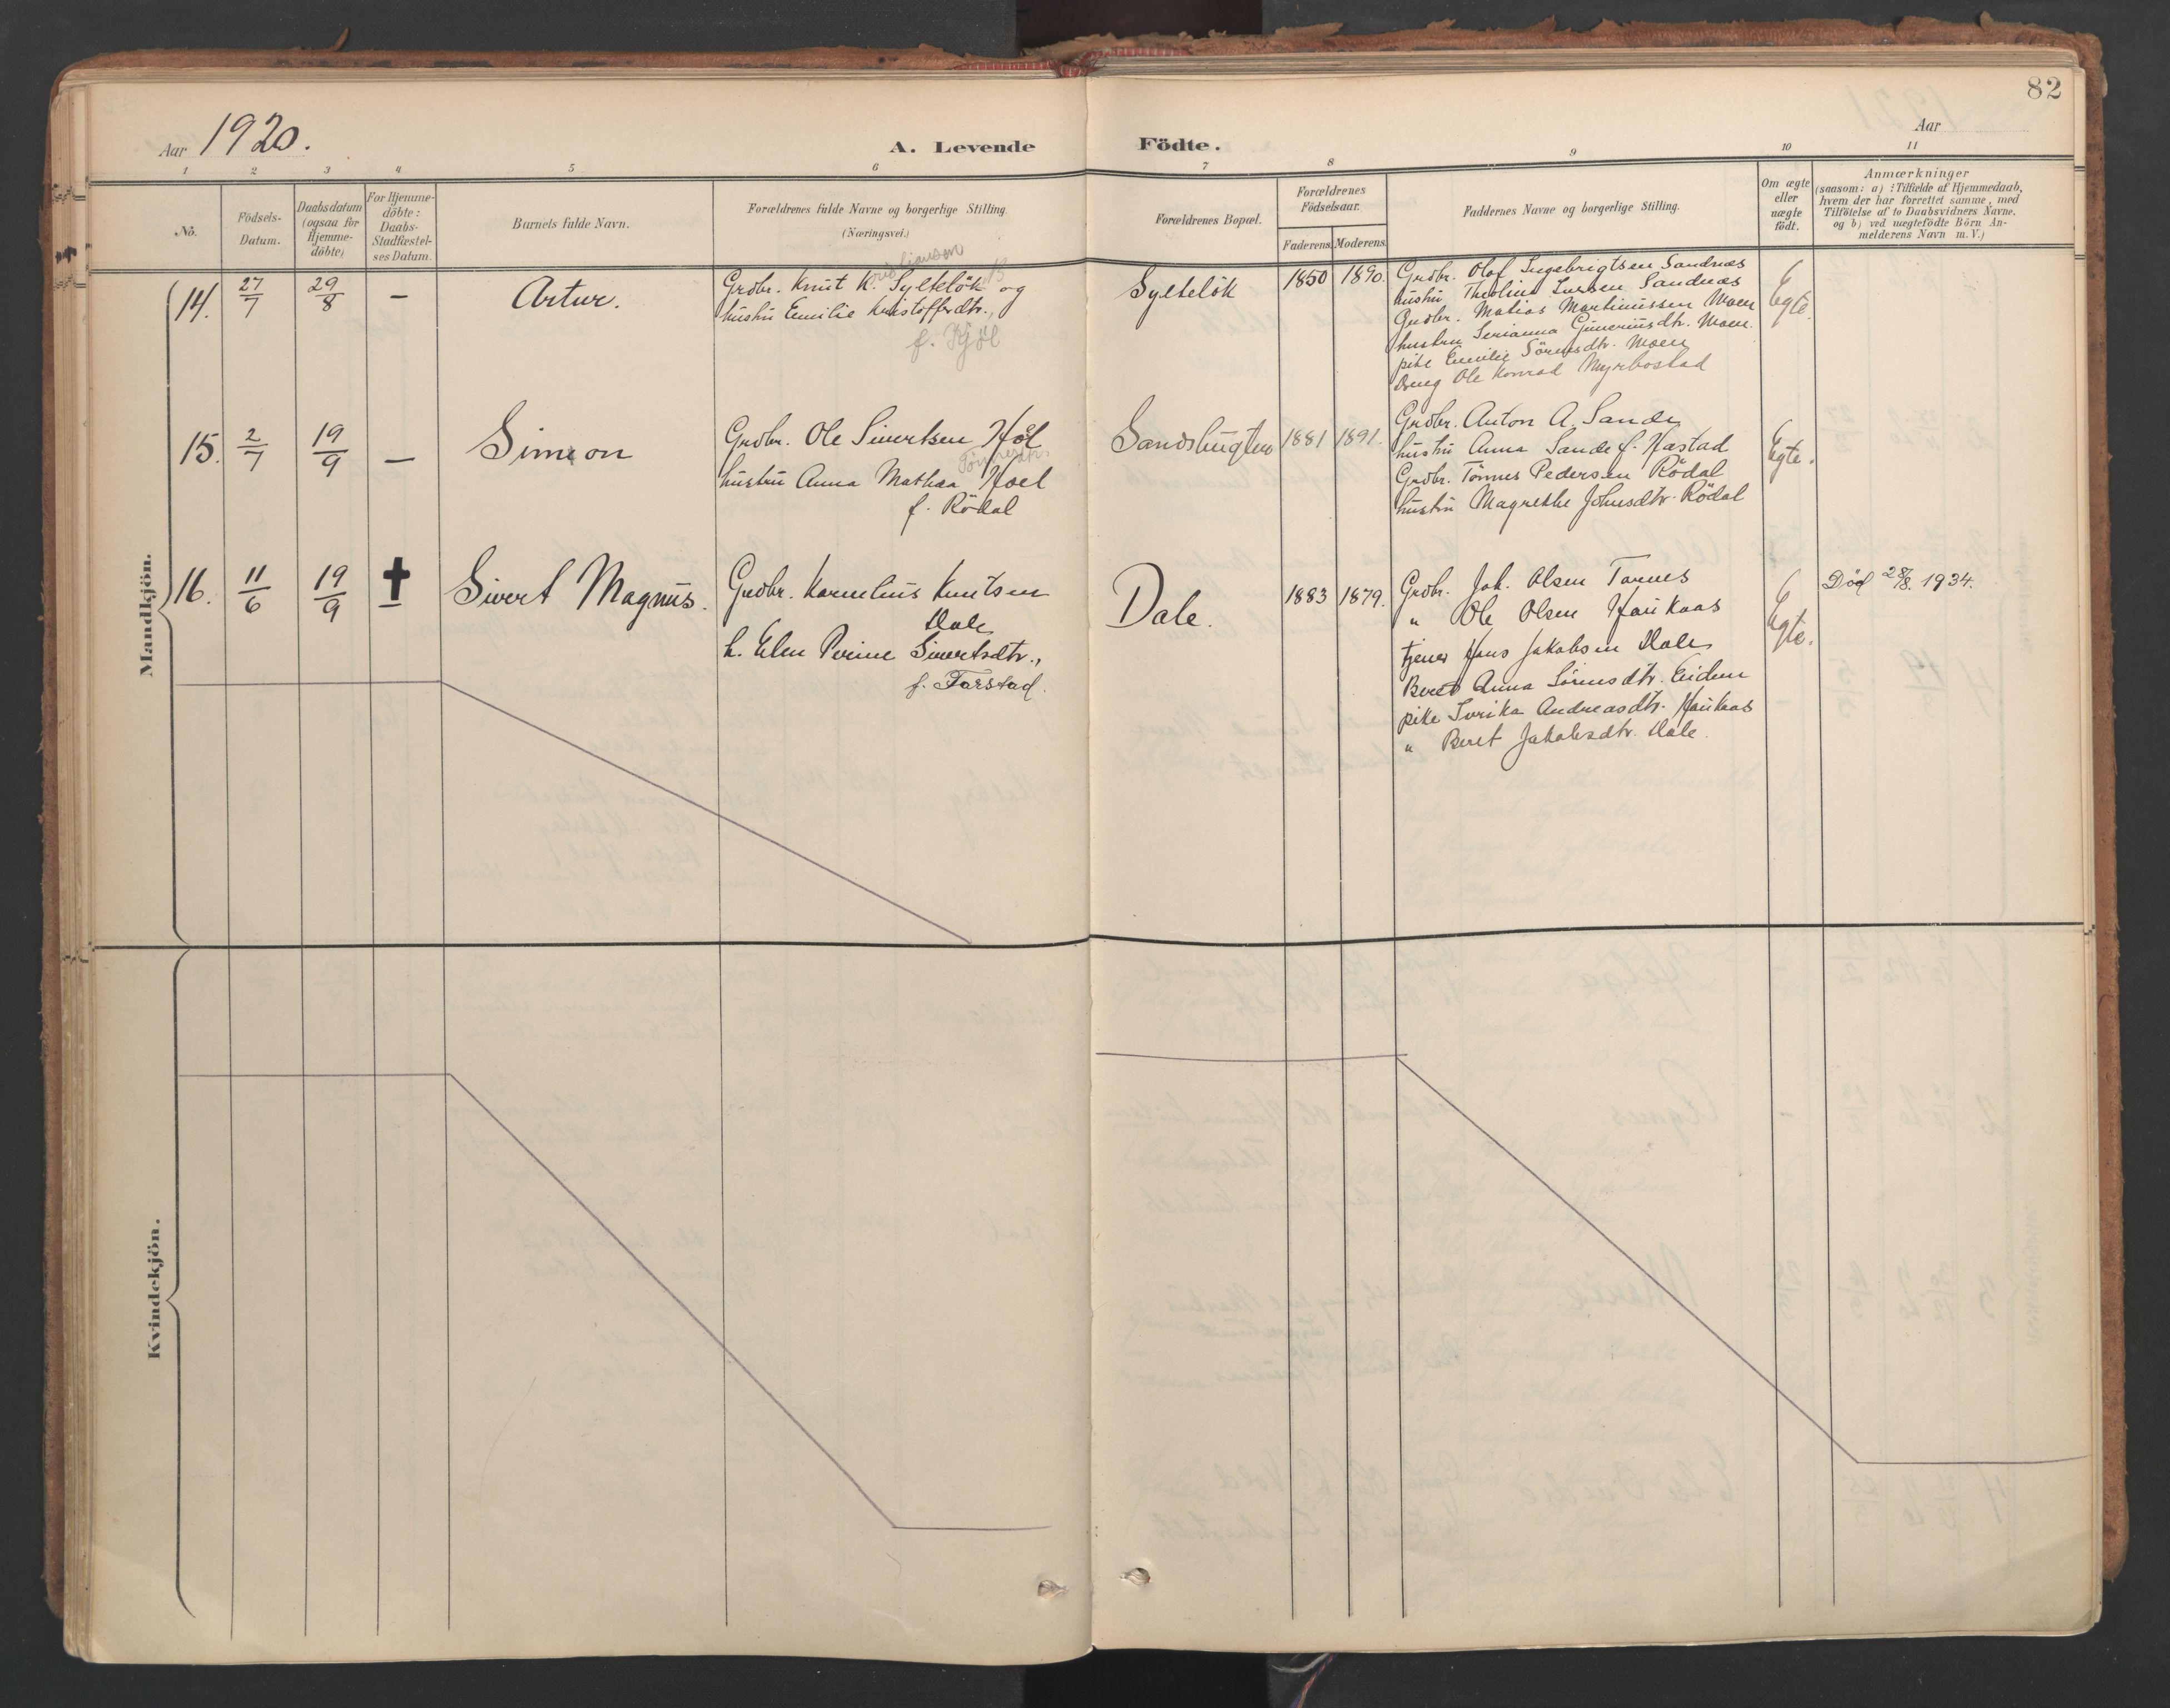 82
Aar 1920.
A. Levende Födte.
Aar
1 2 3 4 5 6 7 8 9 10 11
No.
Födsels-
Datum.
Daabsdatum
(ogsaa for
Hjemme-
döbte)
For Hjemme-
döbte:
Daabs-
Stadfæstel-
ses Datum.
Barnets fulde Navn.
Forældrenes fulde Navne og borgerlige Stilling.
(Næringsvei.)
Forældrenes Bopæl.
Forældrenes
Födselsaar.
Faderens.
Moderens.
Faddernes Navne og borgerlige Stilling.
Om ægte
eller
uægte
födt.
Anmærkninger
(saasom: a) i Tilfælde af Hjemmedaab,
hvem der har forrettet samme, med
Tilföielse af to Daabsvidners Navne.
og b) ved uægtefödte Börn An-
melderens Navn m. V.)
Mandkjön.
14.
27/7
29/8
–
Artur.
Grdbr. Knut K. Sylteløk og
hustru Emilie Kristoffersdtr.,
f. Kjöl
Sylteløk
1850
1890.
Grdbr. Olaf Ingebrigtsen Sandnæs
hustru Theoline Iversen Sandnæs
Grdbr. Matias Martinussen Moen
hustru Serianna Gunneriusdtr. Moen.
pike Emilie Sörensdtr. Moen
Dreng Ole Konrad Myrbostad
Egte.
15.
2/7
19/9
–
Simon
Grdbr. Ole Sivertsen Hol
Tönnesdtr.
hustru Anna Mathea Hoel
f. Rödal
Sandsbugten
1881
1891.
Grdbr. Anton A. Sande
hustru Anna Sande f. Hastad
Grdbr. Tönnes Pedersen Rödal
hustru Magrethe Johnsdtr. Rödal
Egte.
16.
11/6
19/9
✝
–
Sivert Magnus.
Grdbr. Kornelius Knutsen
Dale
h. Elen Perine Sivertsdtr.,
f. Farstad.
Dale.
1883
1879.
Grdbr. Joh. Olsen Tornes
" Ole Olsen Haukaas
tjener Hans Jakobsen Dale
Beret Anna Sörensdtr. Eidem
pike Lovika Andreasdtr. Haukaas
" Beret Jakobsdtr. Dale.
Egte.
Död 28/8. 1934.
Kvindekjön.